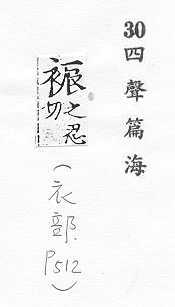 30四聲篇海
裖之忍切
(衣部.P512)